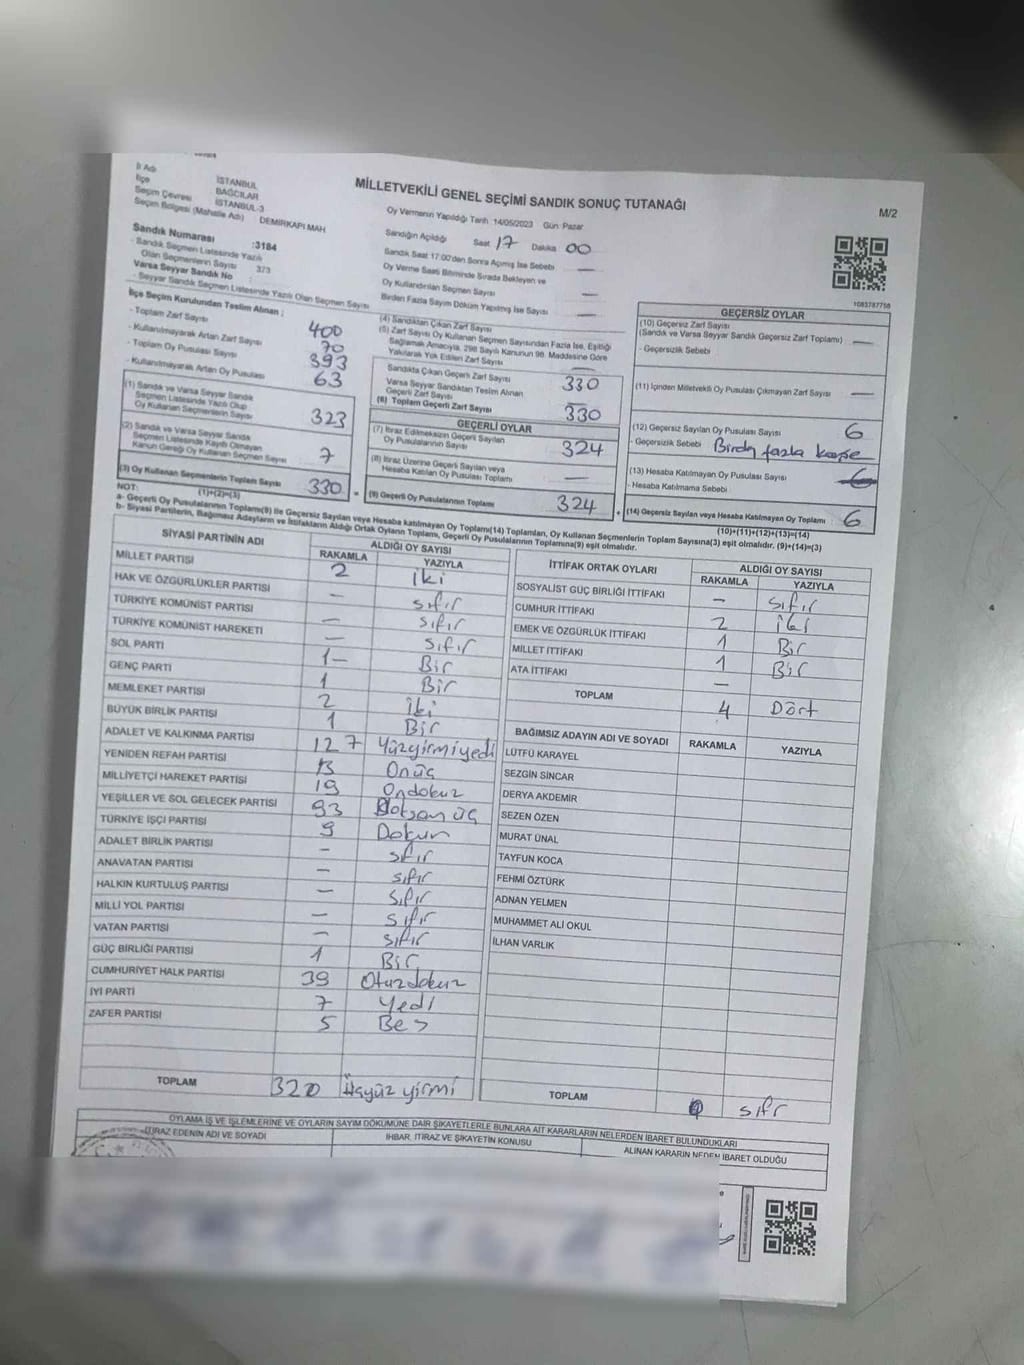 İl Adı İSTANBUL
İlçe BAĞCILAR
Seçim Çevresi İSTANBUL-3
Seçim Bölgesi (Mahalle Adı) DEMİRKAPI MAH
Sandık Numarası :3184
- Sandık Seçmen Listesinde Yazılı
Olan Seçmenlerin Sayısı 373
Varsa Seyyar Sandık No
- Seyyar Sandık Seçmen Listesinde Yazılı Olan Seçmen Sayısı
MİLLETVEKİLİ GENEL SEÇİMİ SANDIK SONUÇ TUTANAĞI
M/2
Oy Vermenin Yapıldığı Tarih 14/05/2023 Gün: Pazar
Sandığın Açıldığı Saat 17 Dakika 00
Sandık Saat 17:00'den Sonra Açılmış İse Sebebi —
Oy Verme Saati Bitiminde Sırada Bekleyen ve
Oy Kullandırılan Seçmen Sayısı —
Birden Fazla Sayım Döküm Yapılmış İse Sayısı —
1083787758
İlçe Seçim Kurulundan Teslim Alınan ;
- Toplam Zarf Sayısı 400
- Kullanılmayarak Artan Zarf Sayısı 70
- Toplam Oy Pusulası Sayısı 393
- Kullanılmayarak Artan Oy Pusulası 63
(1) Sandık ve Varsa Seyyar Sandık
Seçmen Listesinde Yazılı Olup
Oy Kullanan Seçmenlerin Sayısı 323
(2) Sandık ve Varsa Seyyar Sandık
Seçmen Listesinde Kayıtlı Olmayan
Kanun Gereği Oy Kullanan Seçmen Sayısı 7
(3) Oy Kullanan Seçmenlerin Toplam Sayısı 330
(1)+(2)=(3)
(4) Sandıktan Çıkan Zarf Sayısı
(5) Zarf Sayısı Oy Kullanan Seçmen Sayısından Fazla İse, Eşitliği
Sağlamak Amacıyla, 298 Sayılı Kanunun 98. Maddesine Göre
Yakılarak Yok Edilen Zarf Sayısı —
Sandıkta Çıkan Geçerli Zarf Sayısı 330
Varsa Seyyar Sandıktan Teslim Alınan
Geçerli Zarf Sayısı —
(6) Toplam Geçerli Zarf Sayısı 330
GEÇERLİ OYLAR
(7) İtiraz Edilmeksizin Geçerli Sayılan
Oy Pusulalarının Sayısı 324
(8) İtiraz Üzerine Geçerli Sayılan veya
Hesaba Katılan Oy Pusulası Toplamı —
= (9) Geçerli Oy Pusulalarının Toplamı 324
GEÇERSİZ OYLAR
(10) Geçersiz Zarf Sayısı
(Sandık ve Varsa Seyyar Sandık Geçersiz Zarf Toplamı) —
- Geçersizlik Sebebi
(11) İçinden Milletvekili Oy Pusulası Çıkmayan Zarf Sayısı —
(12) Geçersiz Sayılan Oy Pusulası Sayısı 6
- Geçersizlik Sebebi Birden fazla kaşe
(13) Hesaba Katılmayan Oy Pusulası Sayısı
- Hesaba Katılmama Sebebi
+ (14) Geçersiz Sayılan veya Hesaba Katılmayan Oy Toplamı 6
(10)+(11)+(12)+(13)=(14)
NOT:
a- Geçerli Oy Pusulalarının Toplamı(9) ile Geçersiz Sayılan veya Hesaba katılmayan Oy Toplamı(14) Toplamları, Oy Kullanan Seçmenlerin Toplam Sayısına(3) eşit olmalıdır. (9)+(14)=(3)
b- Siyasi Partilerin, Bağımsız Adayların ve İttifakların Aldığı Ortak Oyların Toplamı, Geçerli Oy Pusulalarının Toplamına(9) eşit olmalıdır.
SİYASİ PARTİNİN ADI ALDIĞI OY SAYISI
RAKAMLA YAZIYLA
MİLLET PARTİSİ 2 iki
HAK VE ÖZGÜRLÜKLER PARTİSİ — sıfır
TÜRKİYE KOMÜNİST PARTİSİ — sıfır
TÜRKİYE KOMÜNİST HAREKETİ — sıfır
SOL PARTİ 1— Bir
GENÇ PARTİ 1 Bir
MEMLEKET PARTİSİ 2 iki
BÜYÜK BİRLİK PARTİSİ 1 Bir
ADALET VE KALKINMA PARTİSİ 127 Yüzyirmiyedi
YENİDEN REFAH PARTİSİ 13 Onüç
MİLLİYETÇİ HAREKET PARTİSİ 19 Ondokuz
YEŞİLLER VE SOL GELECEK PARTİSİ 93 Doksan üç
TÜRKİYE İŞÇİ PARTİSİ 9 Dokuz
ADALET BİRLİK PARTİSİ — sıfır
ANAVATAN PARTİSİ — sıfır
HALKIN KURTULUŞ PARTİSİ — sıfır
MİLLİ YOL PARTİSİ — sıfır
VATAN PARTİSİ — sıfır
GÜÇ BİRLİĞİ PARTİSİ 1 Bir
CUMHURİYET HALK PARTİSİ 39 Otuzdokuz
İYİ PARTİ 7 Yedi
ZAFER PARTİSİ 5 Beş
TOPLAM 320 Üçyüz yirmi
İTTİFAK ORTAK OYLARI ALDIĞI OY SAYISI
RAKAMLA YAZIYLA
SOSYALİST GÜÇ BİRLİĞİ İTTİFAKI — sıfır
CUMHUR İTTİFAKI 2 iki
EMEK VE ÖZGÜRLÜK İTTİFAKI 1 Bir
MİLLET İTTİFAKI 1 Bir
ATA İTTİFAKI —
TOPLAM 4 Dört
BAĞIMSIZ ADAYIN ADI VE SOYADI RAKAMLA YAZIYLA
LÜTFÜ KARAYEL
SEZGİN SİNCAR
DERYA AKDEMİR
SEZEN ÖZEN
MURAT ÜNAL
TAYFUN KOCA
FEHMİ ÖZTÜRK
ADNAN YELMEN
MUHAMMET ALİ OKUL
İLHAN VARLIK
TOPLAM sıfır
OYLAMA İŞ VE İŞLEMLERİNE VE OYLARIN SAYIM DÖKÜMÜNE DAİR ŞİKAYETLERLE BUNLARA AİT KARARLARIN NELERDEN İBARET BULUNDUKLARI
İTİRAZ EDENİN ADI VE SOYADI İHBAR, İTİRAZ VE ŞİKAYETİN KONUSU ALINAN KARARIN NEDEN İBARET OLDUĞU